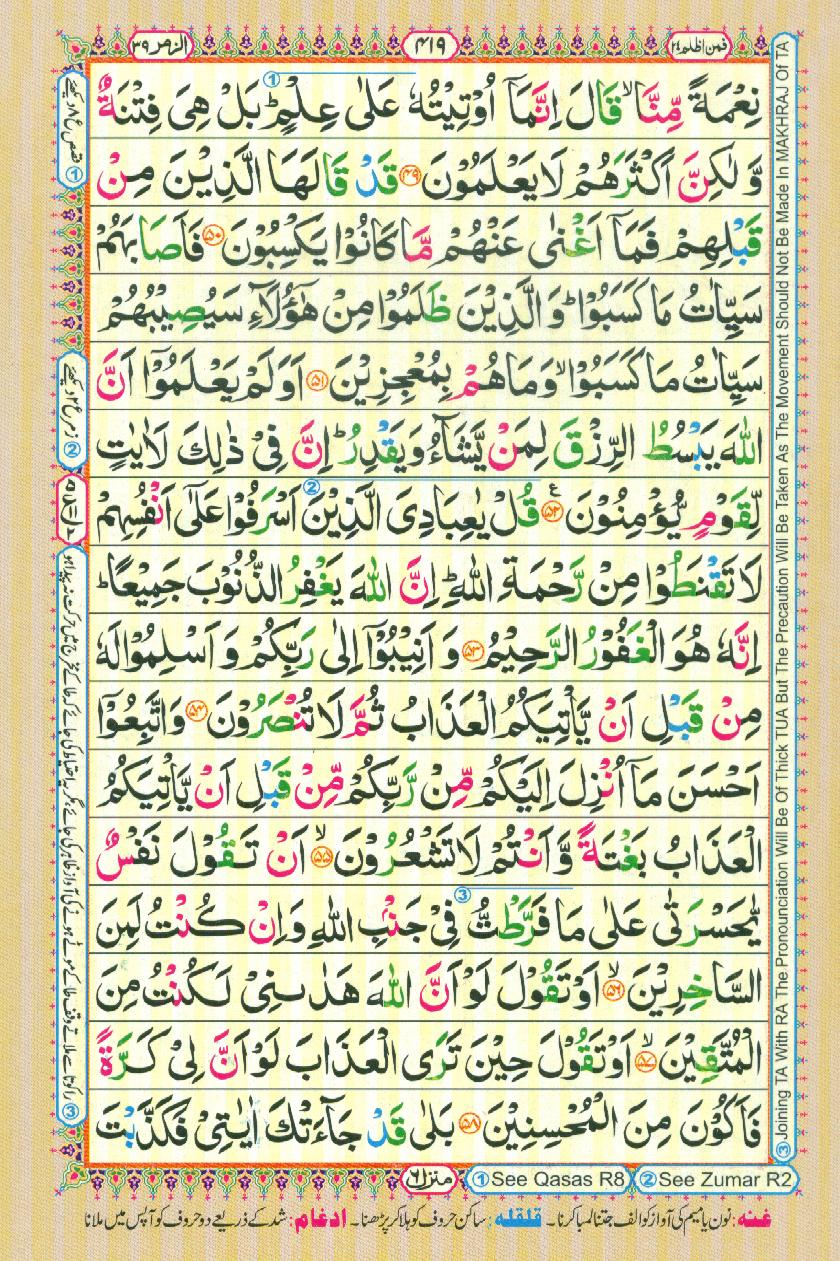 فمن اظلم ٢٤
٤١٩
الزمر ٣٩
نِعْمَةً مِّنَّا ۙ قَالَ اِنَّمَاۤ اُوْتِيْتُهٗ عَلٰى عِلْمٍ ؕ بَلْ هِىَ فِتْنَةٌ
وَّلٰكِنَّ اَكْثَرَهُمْ لَا يَعْلَمُوْنَ ﴿۴۹﴾ قَدْ قَالَهَا الَّذِيْنَ مِنْ
قَبْلِهِمْ فَمَاۤ اَغْنٰى عَنْهُمْ مَّا كَانُوْا يَكْسِبُوْنَ ﴿۵۰﴾ فَاَصَابَهُمْ
سَيِّاٰتُ مَا كَسَبُوْا ؕ وَالَّذِيْنَ ظَلَمُوْا مِنْ هٰٓؤُلَآءِ سَيُصِيْبُهُمْ
سَيِّاٰتُ مَا كَسَبُوْا ۙ وَمَا هُمْ بِمُعْجِزِيْنَ ﴿۵۱﴾ اَوَلَمْ يَعْلَمُوْۤا اَنَّ
اللّٰهَ يَبْسُطُ الرِّزْقَ لِمَنْ يَّشَآءُ وَيَقْدِرُ ؕ اِنَّ فِىْ ذٰلِكَ لَاٰيٰتٍ
لِّقَوْمٍ يُّؤْمِنُوْنَ ﴿۵۲﴾ ع قُلْ يٰعِبَادِىَ الَّذِيْنَ اَسْرَفُوْا عَلٰٓى اَنْفُسِهِمْ
لَا تَقْنَطُوْا مِنْ رَّحْمَةِ اللّٰهِ ؕ اِنَّ اللّٰهَ يَغْفِرُ الذُّنُوْبَ جَمِيْعًا ؕ
اِنَّهٗ هُوَ الْغَفُوْرُ الرَّحِيْمُ ﴿۵۳﴾ وَاَنِيْبُوْۤا اِلٰى رَبِّكُمْ وَاَسْلِمُوْا لَهٗ
مِنْ قَبْلِ اَنْ يَّاْتِيَكُمُ الْعَذَابُ ثُمَّ لَا تُنْصَرُوْنَ ﴿۵۴﴾ وَاتَّبِعُوْۤا
اَحْسَنَ مَاۤ اُنْزِلَ اِلَيْكُمْ مِّنْ رَّبِّكُمْ مِّنْ قَبْلِ اَنْ يَّاْتِيَكُمُ
الْعَذَابُ بَغْتَةً وَّاَنْتُمْ لَا تَشْعُرُوْنَ ﴿۵۵﴾ ۙ اَنْ تَقُوْلَ نَفْسٌ
يّٰحَسْرَتٰى عَلٰى مَا فَرَّطْتُّ فِىْ جَنْۢبِ اللّٰهِ وَاِنْ كُنْتُ لَمِنَ
السَّاخِرِيْنَ ﴿۵۶﴾ ۙ اَوْ تَقُوْلَ لَوْ اَنَّ اللّٰهَ هَدٰٮنِىْ لَكُنْتُ مِنَ
الْمُتَّقِيْنَ ﴿۵۷﴾ ۙ اَوْ تَقُوْلَ حِيْنَ تَرَى الْعَذَابَ لَوْ اَنَّ لِىْ كَرَّةً
فَاَكُوْنَ مِنَ الْمُحْسِنِيْنَ ﴿۵۸﴾ بَلٰى قَدْ جَآءَتْكَ اٰيٰتِىْ فَكَذَّبْتَ
③ Joining TA With RA The Pronounciation Will Be Of Thick TUA But The Precaution Will Be Taken As The Movement Should Not Be Made In MAKHRAJ Of TA
منزل ٦
① See Qasas R8
② See Zumar R2
غنه: نون یا میم کی آواز کو الف جتنا لمبا کرنا۔ قلقله: ساکن حروف کو ہلا کر پڑھنا۔ ادغام: شد کے ذریعے دو حروف کو آپس میں ملانا